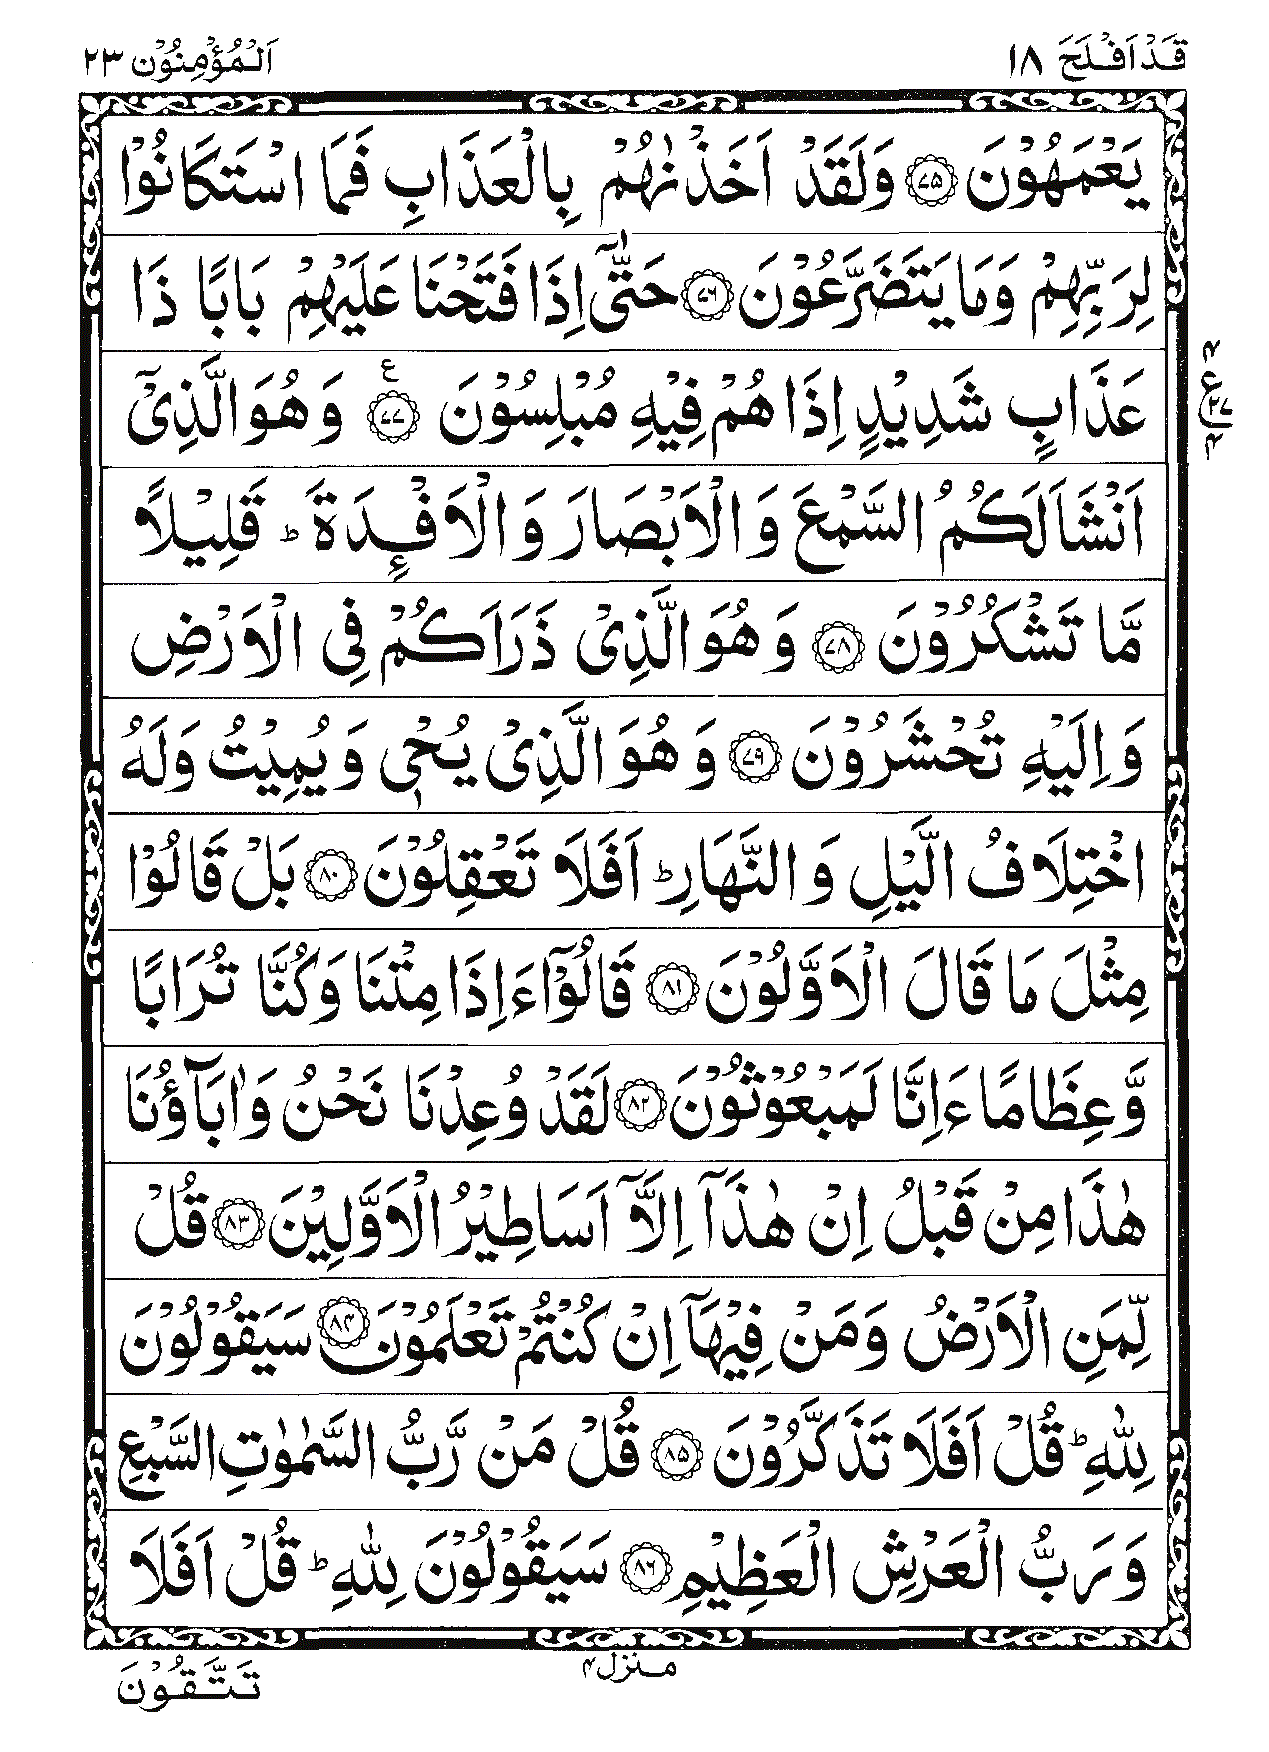 قَدْ اَفْلَحَ ۱۸
اَلْمُؤْمِنُوْن ۲۳
يَعْمَهُوْنَ ۷۵ وَلَقَدْ اَخَذْنٰهُمْ بِالْعَذَابِ فَمَا اسْتَكَانُوْا
لِرَبِّهِمْ وَمَا يَتَضَرَّعُوْنَ ۷۶ حَتّٰٓى اِذَا فَتَحْنَا عَلَيْهِمْ بَابًا ذَا
عَذَابٍ شَدِيْدٍ اِذَا هُمْ فِيْهِ مُبْلِسُوْنَ ۷۷ ع وَ هُوَ الَّذِىْٓ
اَنْشَاَ لَكُمُ السَّمْعَ وَ الْاَبْصَارَ وَ الْاَفْـِٕدَةَ ؕ قَلِيْلًا
مَّا تَشْكُرُوْنَ ۷۸ وَ هُوَ الَّذِىْ ذَرَاَكُمْ فِى الْاَرْضِ
وَ اِلَيْهِ تُحْشَرُوْنَ ۷۹ وَ هُوَ الَّذِىْ يُحْىٖ وَ يُمِيْتُ وَلَهُ
اخْتِلَافُ الَّيْلِ وَ النَّهَارِ ؕ اَفَلَا تَعْقِلُوْنَ ۸۰ بَلْ قَالُوْا
مِثْلَ مَا قَالَ الْاَوَّلُوْنَ ۸۱ قَالُوْٓا ءَاِذَا مِتْنَا وَكُنَّا تُرَابًا
وَّعِظَامًا ءَاِنَّا لَمَبْعُوْثُوْنَ ۸۲ لَقَدْ وُعِدْنَا نَحْنُ وَاٰبَآؤُنَا
هٰذَا مِنْ قَبْلُ اِنْ هٰذَآ اِلَّآ اَسَاطِيْرُ الْاَوَّلِيْنَ ۸۳ قُلْ
لِّمَنِ الْاَرْضُ وَمَنْ فِيْهَآ اِنْ كُنْتُمْ تَعْلَمُوْنَ ۸۴ سَيَقُوْلُوْنَ
لِلّٰهِ ؕ قُلْ اَفَلَا تَذَكَّرُوْنَ ۸۵ قُلْ مَنْ رَّبُّ السَّمٰوٰتِ السَّبْعِ
وَ رَبُّ الْعَرْشِ الْعَظِيْمِ ۸۶ سَيَقُوْلُوْنَ لِلّٰهِ ؕ قُلْ اَفَلَا
منزل ۴
تَتَّقُوْنَ